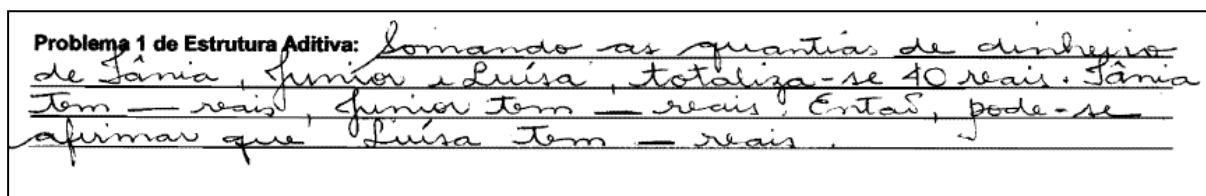 Problema 1 de Estrutura Aditiva: Somando as quantias de dinheiro
de Tânia, Junior e Luísa, totaliza-se 40 reais. Tânia
tem — reais, Junior tem — reais. Então, pode-se
afirmar que Luísa tem — reais.